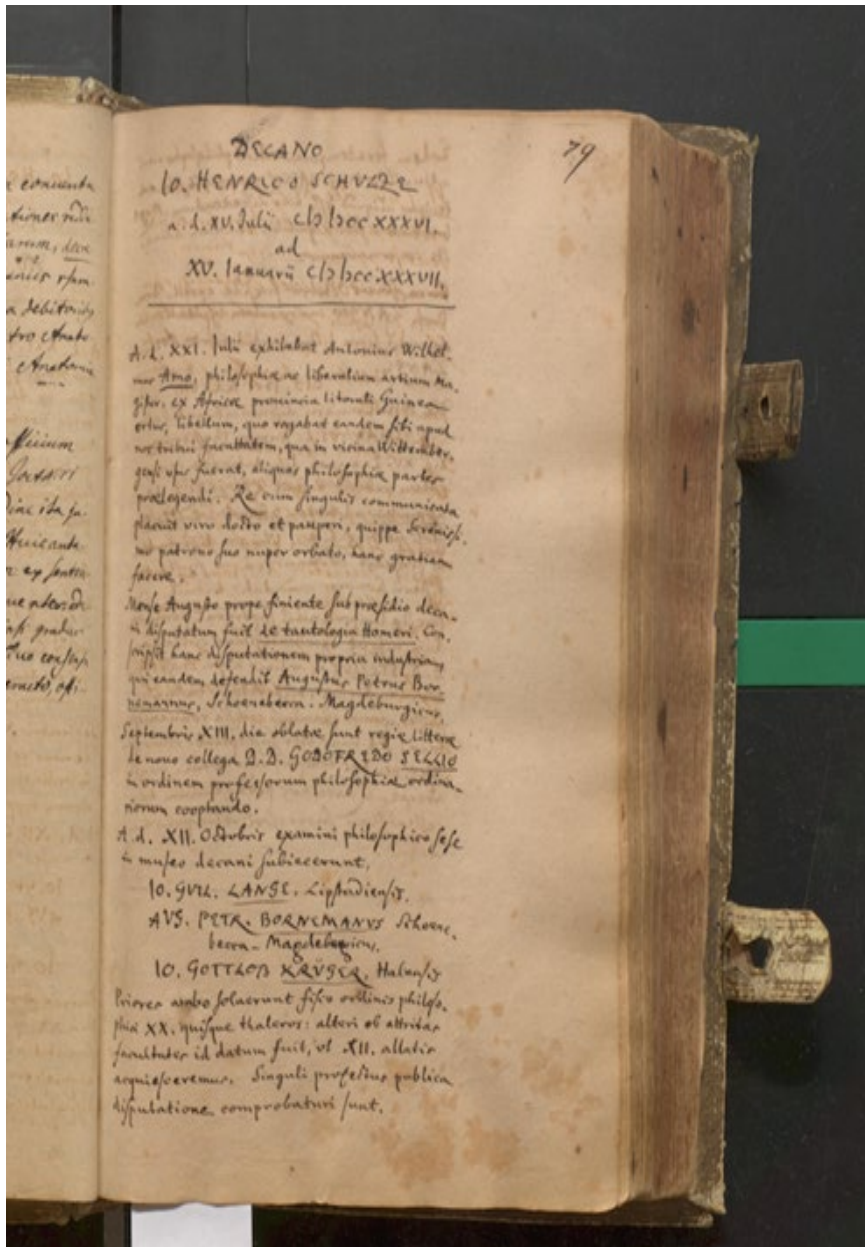 a conuenta
tiones
darum, deca
a debitoris
tro Anato
Anatomia
officium
ita ju.
Huic ante
ex senten
gradus
79
DECANO
IO. HENRICO SCHVLZE
a. d. XV. Julii CIƆIƆCCXXXVI.
ad
XV. Ianuarii CIƆIƆCCXXXVII.
A. d. XXI. Iulii exhibebat Antonius Wilhel-
mus Amo, philosophiæ ac liberalium artium Ma-
gister. ex Africæ prouincia litorali Guinea
ortus, libellum, quo rogabat eandem sibi apud
nos tribui facultatem, qua in vicina Wittember-
gensi usus fuerat, aliquas philosophiæ partes
prælegendi. Re cum singulis communicata
placuit viro docto et pauperi, quippe Serenissi-
mo patrono suo nuper orbato, hanc gratiam
facere.
Mense Augusto prope finiente sub præsidio deca-
ni disputatum fuit de tautologia Homeri. Con-
scripsit hanc disputationem propria industria,
qui eandem defendit Augustus Petrus Bor-
nemannus, Schoenebecca-Magdeburgicus.
Septembris XIII. die oblatæ sunt regiæ litteræ
de nouo collega D. D. GODOFREDO SELLIO
in ordinem professorum philosophiæ ordina-
riorum cooptando.
A. d. XII. Octobris examini philosophico sese
in museo decani subiecerunt.
IO. GUIL. LANGE. Lipstadiensis.
AVG. PETR. BORNEMANVS Schoene-
becca-Magdeburgicus.
IO. GOTTLOB KRÜGER, Halensis
Priores ambo soluerunt fisco ordinis philoso-
phici XX. quisque thaleros: alteri ob attritas
facultates id datum fuit, ut XII. allatis
acquiesceremus. Singuli profectus publica
disputatione comprobaturi sunt.